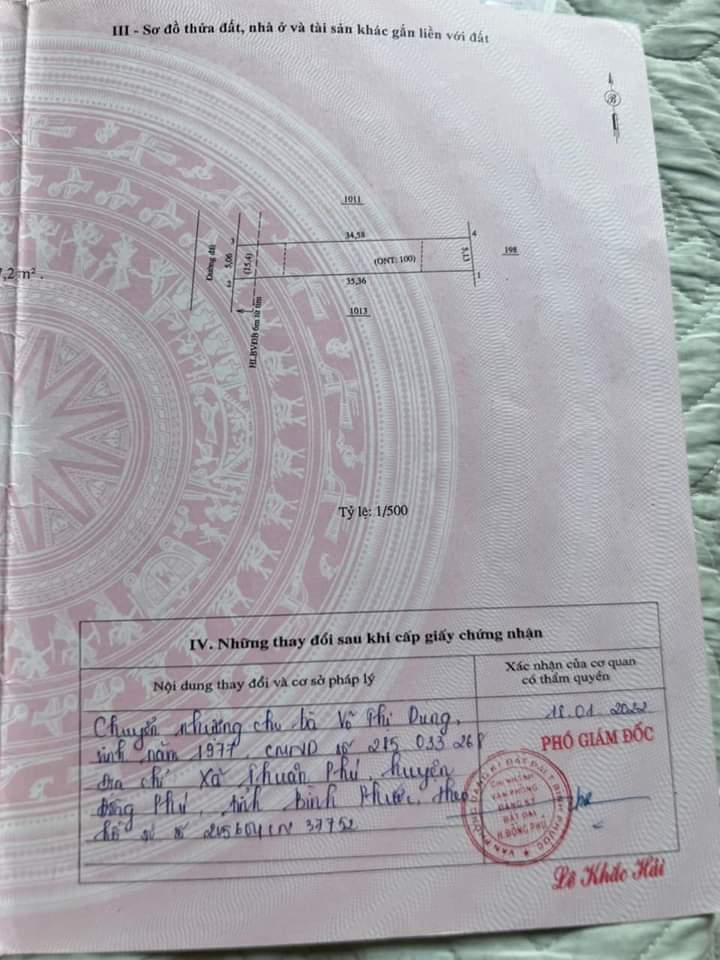 III - Sơ đồ thửa đất, nhà ở và tài sản khác gắn liền với đất
B
1011
34,58
3
4
Đường đất
5,06
(15.4)
(ONT: 100)
5,13
198
,2 m².
2
1
35,36
1013
HLBVĐB 6m từ tim
Tỷ lệ: 1/500
IV. Những thay đổi sau khi cấp giấy chứng nhận
Nội dung thay đổi và cơ sở pháp lý
Xác nhận của cơ quan
có thẩm quyền
Chuyển nhượng cho bà Võ Thi Dung,
sinh năm 1977, CMND số 285 033 268
Địa chỉ Xã Thuận Phú, huyện
Đồng Phú, tỉnh Bình Phước, theo
hồ sơ số
18.01.2022
PHÓ GIÁM ĐỐC
CHI NHÁNH
VĂN PHÒNG
ĐĂNG KÝ
ĐẤT ĐAI
H.ĐỒNG PHÚ
Lê Khắc Hải